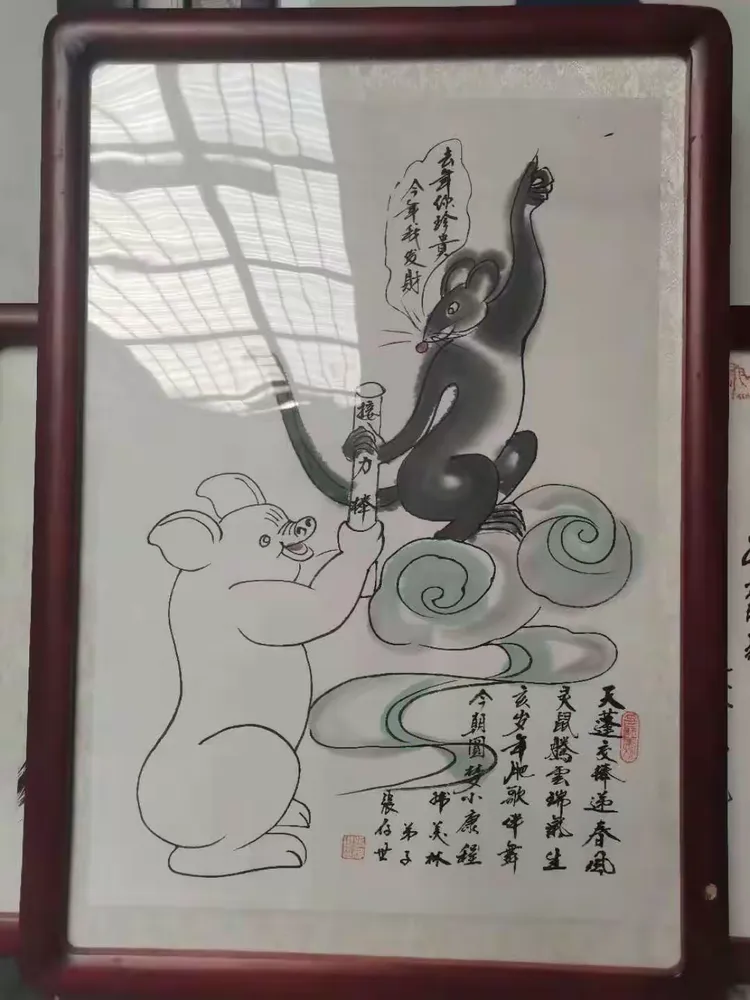 去年你珍貴
今年我发財
接力棒
天蓬交棒递春风
灵鼠騰雲瑞氣生
亥岁年肥歌伴舞
今朝圆梦小康程
韩美林
弟子
張存世